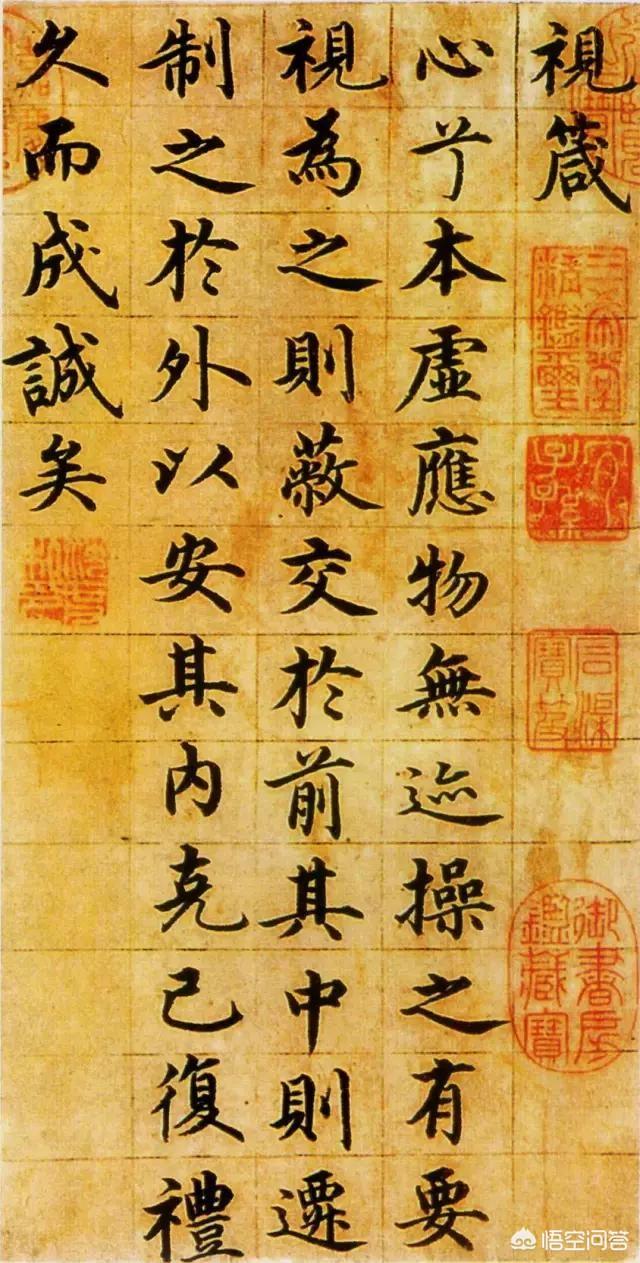 視箴
三希堂精鑑璽
宜子孫
石渠寶笈
御書房鑑藏寶
心兮本虛應物無迹操之有要
視為之則蔽交於前其中則遷
制之於外以安其内克己復禮
久而成誠矣
悟空问答